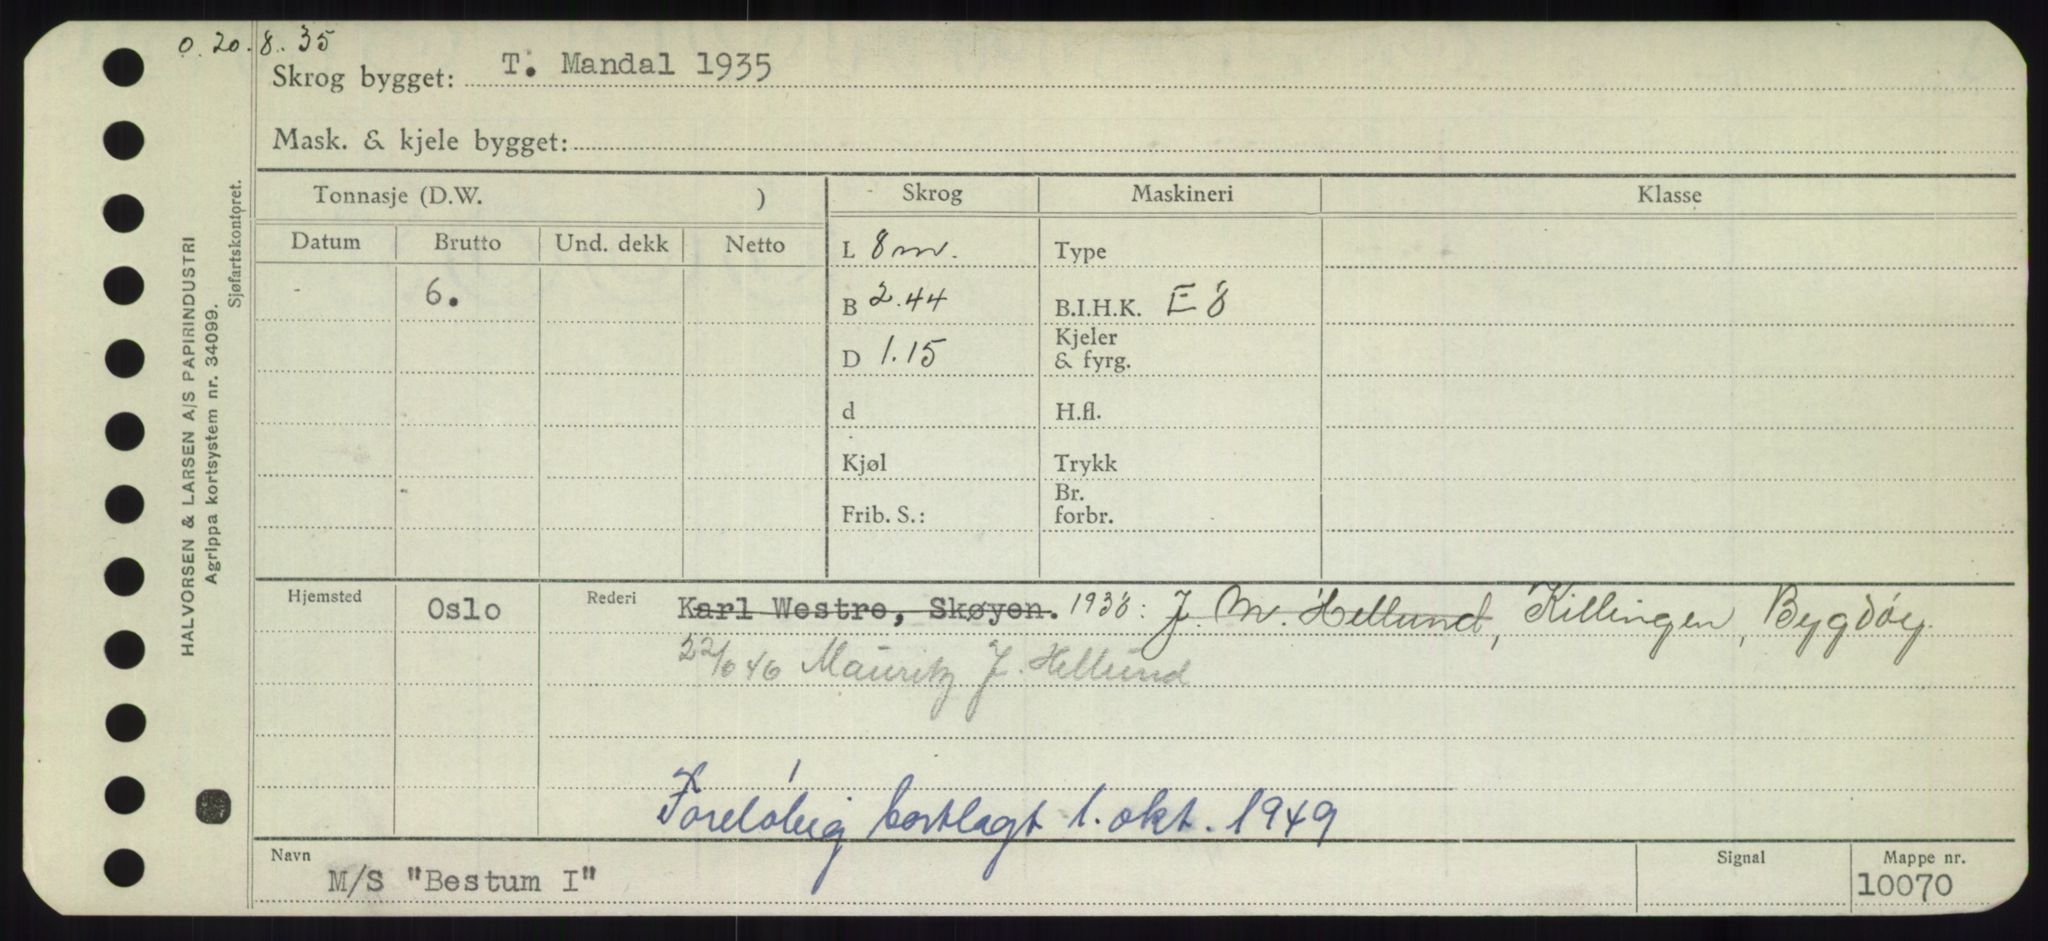 O. 20.8.35
Skrog bygget: T. Mandal 1935
Mask. & kjele bygget:
Tonnasje (D.W. ) Skrog Maskineri Klasse
Datum Brutto Und. dekk Netto L 8 m. Type
6. B 2.44 B.I.H.K. E 8
D 1.15 Kjeler & fyrg.
d H.fl.
Kjøl Trykk
Frib. S.: Br. forbr.
Hjemsted Oslo Rederi Karl Westre, Skøyen. 1938: J. M. Hellund, Killingen, Bygdöy
22/6 46 Mauritz J. Hellund
Foreløbig bortlagt 1. okt. 1949
Navn Signal Mappe nr.
M/S "Bestum I" 10070
HALVORSEN & LARSEN A/S PAPIRINDUSTRI
Agrippa kortsystem nr. 34099.
Sjøfartskontoret.